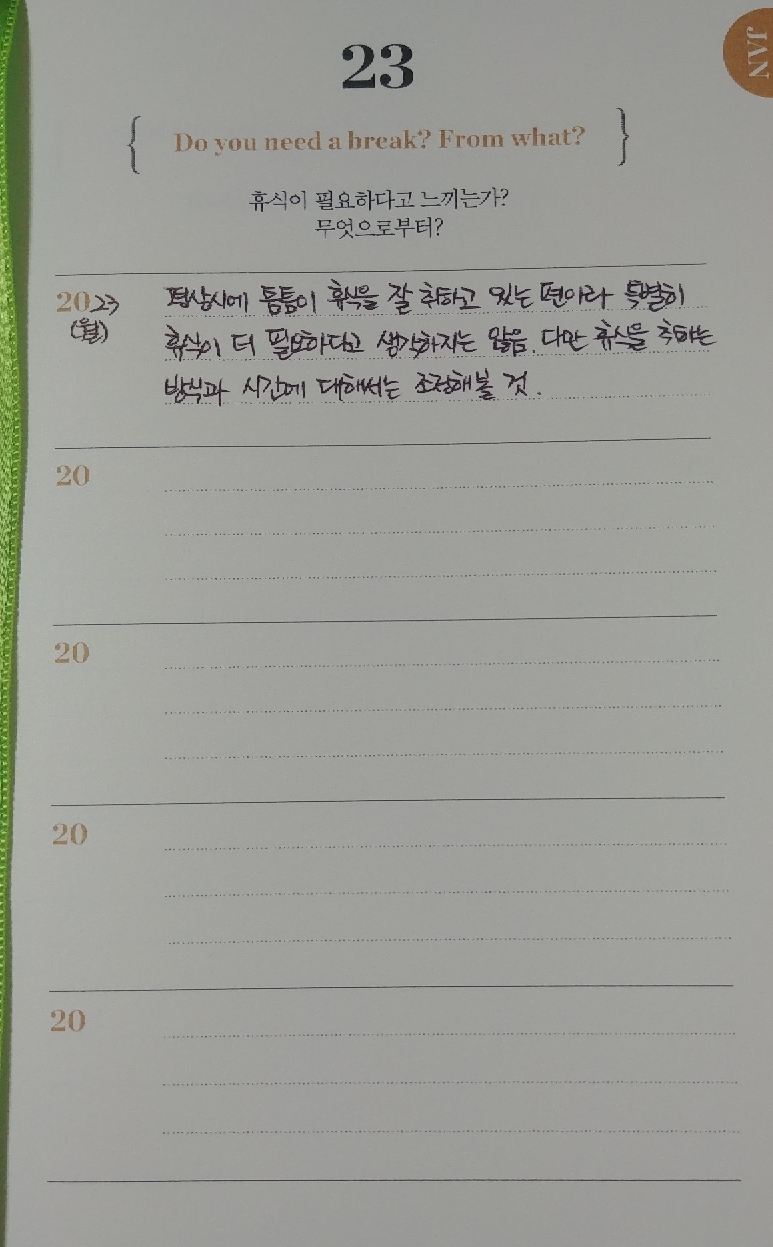 JAN
23
{ Do you need a break? From what? }
휴식이 필요하다고 느끼는가?
무엇으로부터?
2023 평상시에 틈틈이 휴식을 잘 취하고 있는 편이라 특별히
(월) 휴식이 더 필요하다고 생각하지는 않음. 다만 휴식을 취하는
방식과 시간에 대해서는 조정해볼 것.
20
20
20
20